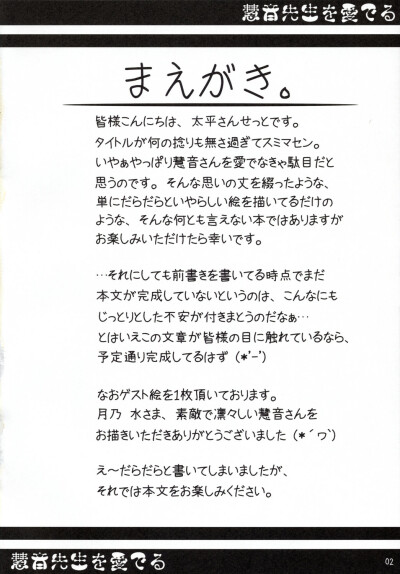 慧音先生を愛でる
まえがき。
皆様こんにちは、太平さんせっとです。
タイトルが何の捻りも無さ過ぎてスミマセン。
いやぁやっぱり慧音さんを愛でなきゃ駄目だと
思うのです。そんな思いの丈を綴ったような、
単にだらだらといやらしい絵を描いてるだけの
ような、そんな何とも言えない本ではありますが
お楽しみいただけたら幸いです。
…それにしても前書きを書いてる時点でまだ
本文が完成していないというのは、こんなにも
じっとりとした不安が付きまとうのだなぁ…
とはいえこの文章が皆様の目に触れているなら、
予定通り完成してるはず (*'-')
なおゲスト絵を1枚頂いております。
月乃 水さま、素敵で凛々しい慧音さんを
お描きいただきありがとうございました (*´ヮ`)
え～だらだらと書いてしまいましたが、
それでは本文をお楽しみください。
慧音先生を愛でる
02